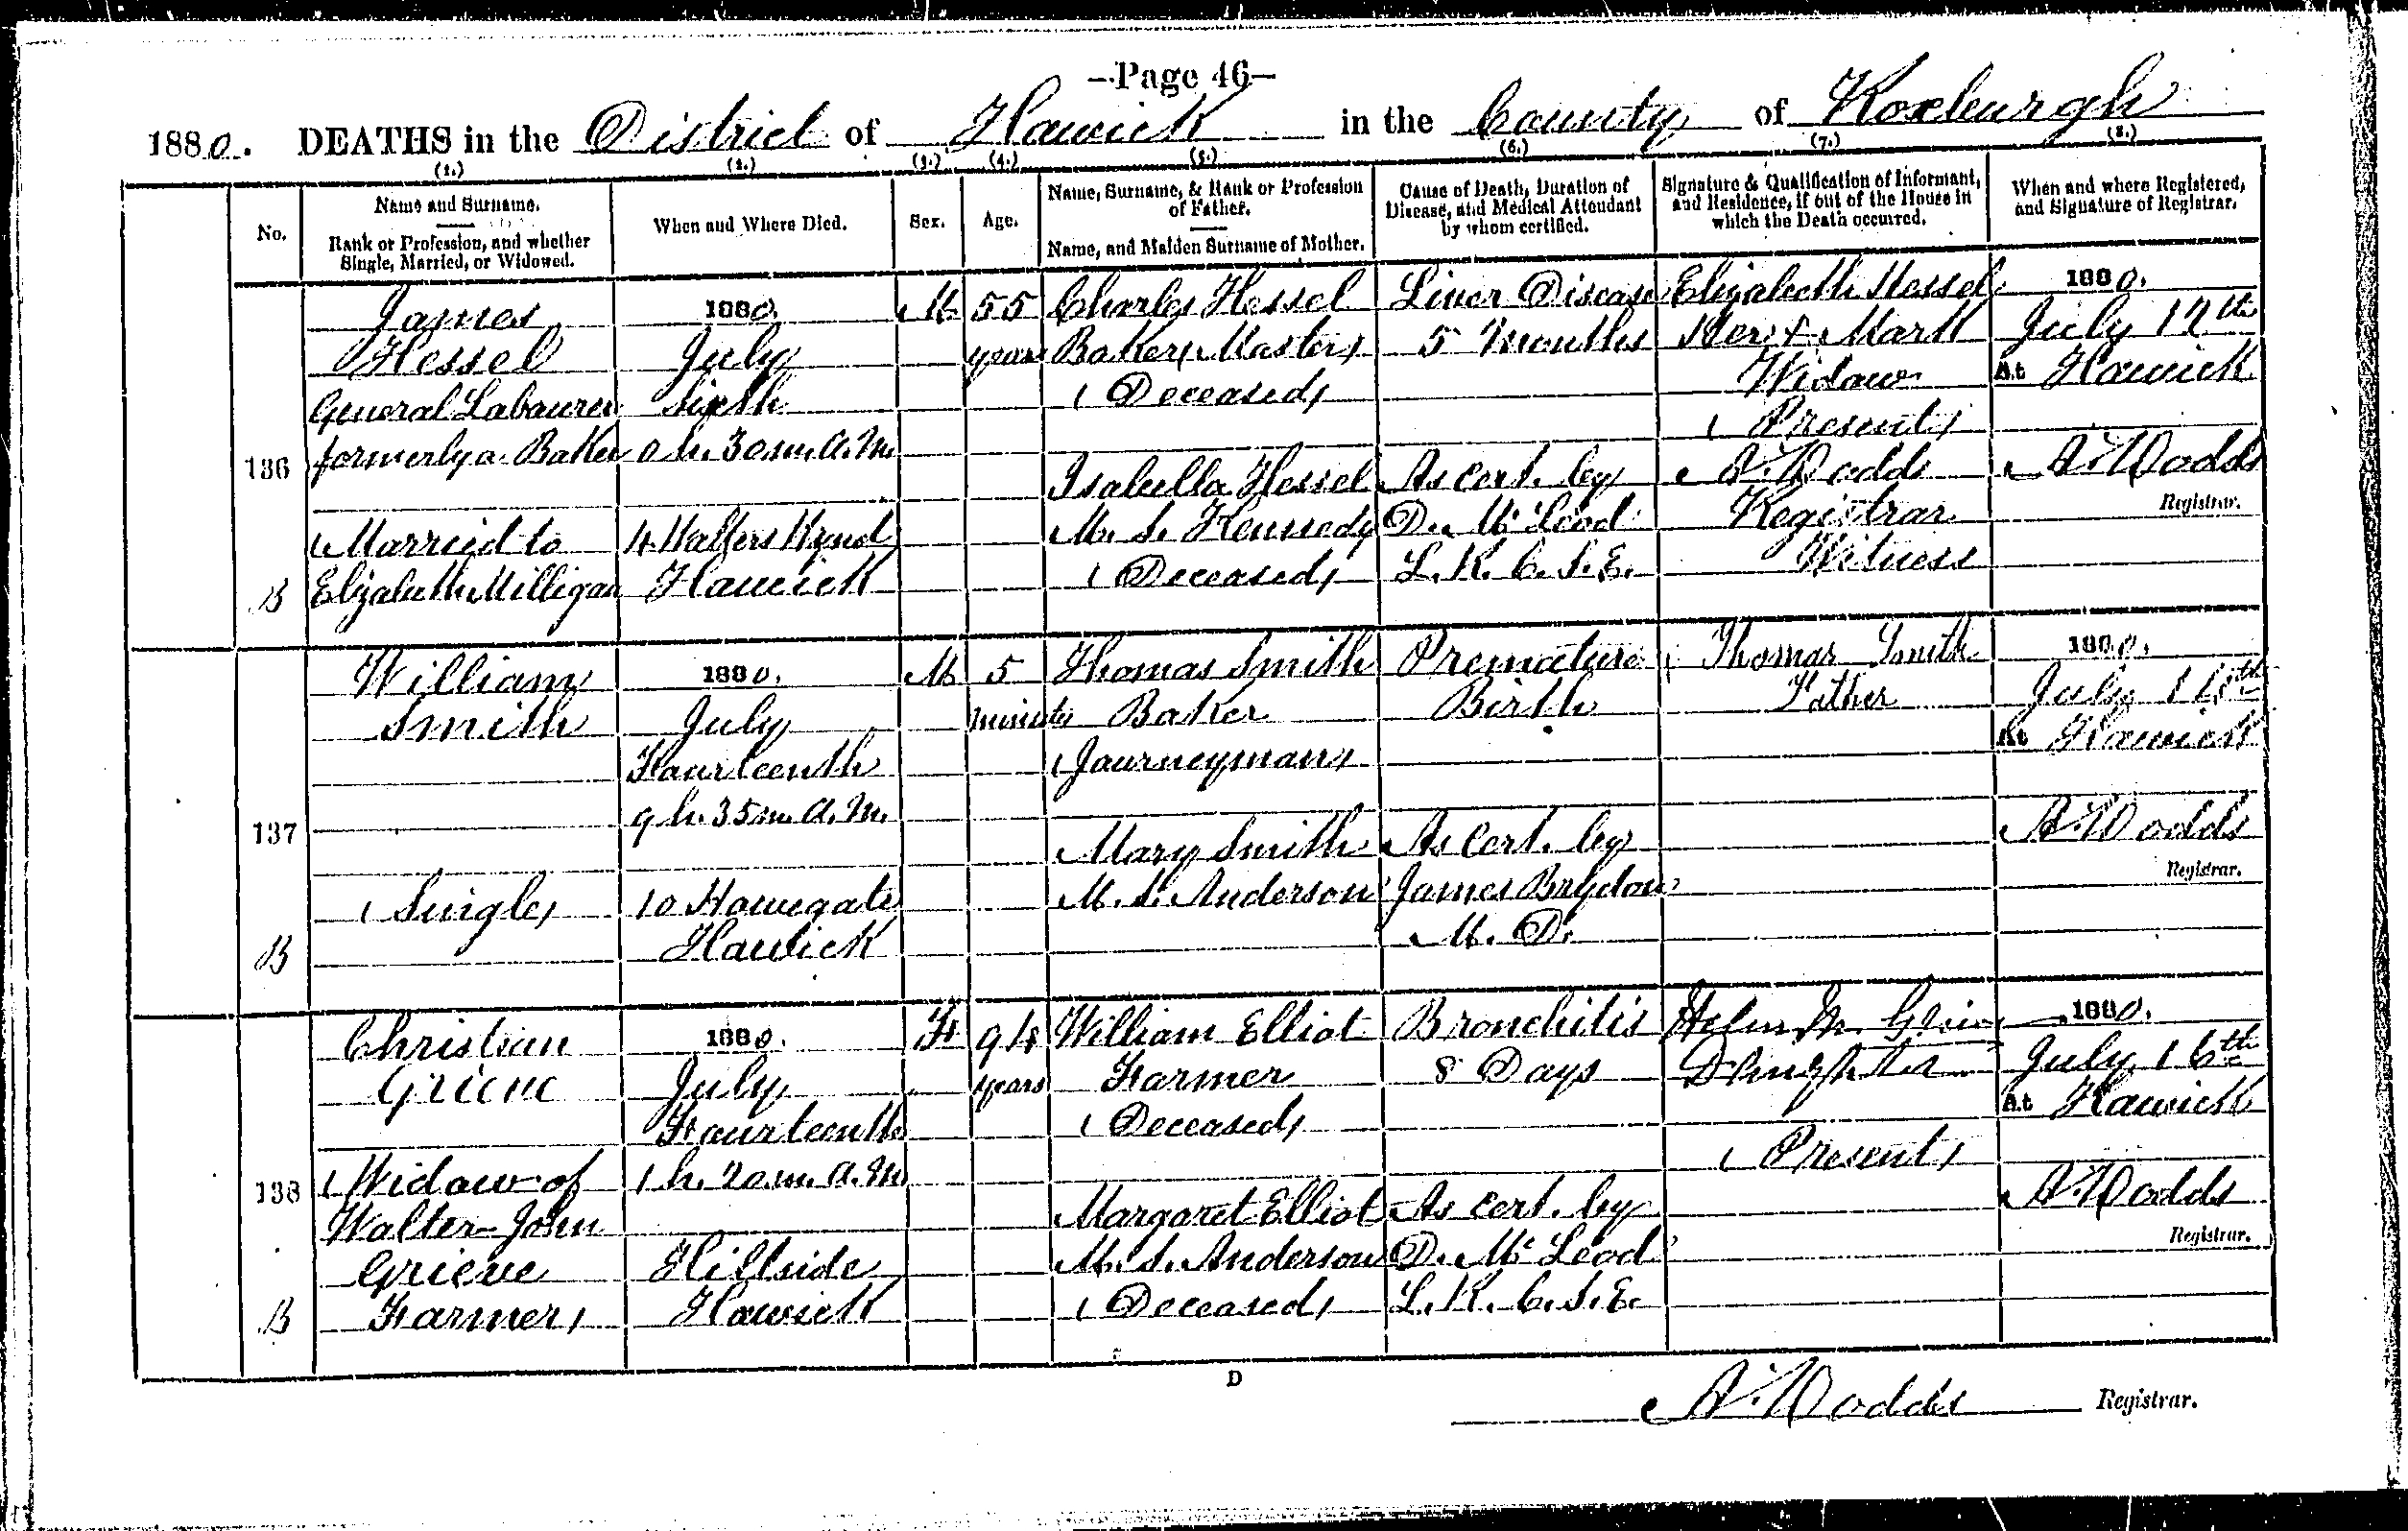 —Page 46—
1880. DEATHS in the District of Hawick in the County of Roxburgh
(1.) (2.) (3.) (4.) (5.) (6.) (7.) (8.)
No.
Name and Surname.
Rank or Profession, and whether
Single, Married, or Widowed.
When and Where Died.
Sex.
Age.
Name, Surname, & Rank or Profession
of Father.
Name, and Maiden Surname of Mother.
Cause of Death, Duration of
Disease, and Medical Attendant
by whom certified.
Signature & Qualification of Informant,
and Residence, if out of the House in
which the Death occurred.
When and where Registered,
and Signature of Registrar.
136
B
James
Hessel
General Labourer
formerly a Baker
(Married to
Elizabeth Milligan
1880.
July
Sixth
0 h. 30 m. A.M.
4 Walters Wynd
Hawick
M
55
years
Charles Hessel
Baker (Master)
(Deceased)
Isabella Hessel
M. S. Kennedy
(Deceased)
Liver Disease
5 Months
As cert. by
D. McLeod
L. R. C. S. E.
Elizabeth Hessel
Her x Mark
Widow
(Present)
A. Dodds
Registrar
Witness
1880.
July 17th
At Hawick
A. Dodds
Registrar.
137
B
William
Smith
(Single)
1880.
July
Fourteenth
9 h. 35 m. A.M.
10 Howegate
Hawick
M
5
minutes
Thomas Smith
Baker
(Journeyman)
Mary Smith
M. S. Anderson
Premature
Birth
As Cert. by
James Brydon
M. D.
Thomas Smith
Father
1880.
July 16th
At Hawick
A. Dodds
Registrar.
138
B
Christian
Grieve
(Widow of
Walter John
Grieve
Farmer)
1880.
July
Fourteenth
1 h. 20 m. A.M.
Hillside
Hawick
F
94
years
William Elliot
Farmer
(Deceased)
Margaret Elliot
M. S. Anderson
(Deceased)
Bronchitis
8 Days
As cert. by
D. McLeod
L. R. C. S. E.
Daughter
(Present)
1880.
July 16th
At Hawick
A. Dodds
Registrar.
D
A. Dodds Registrar.